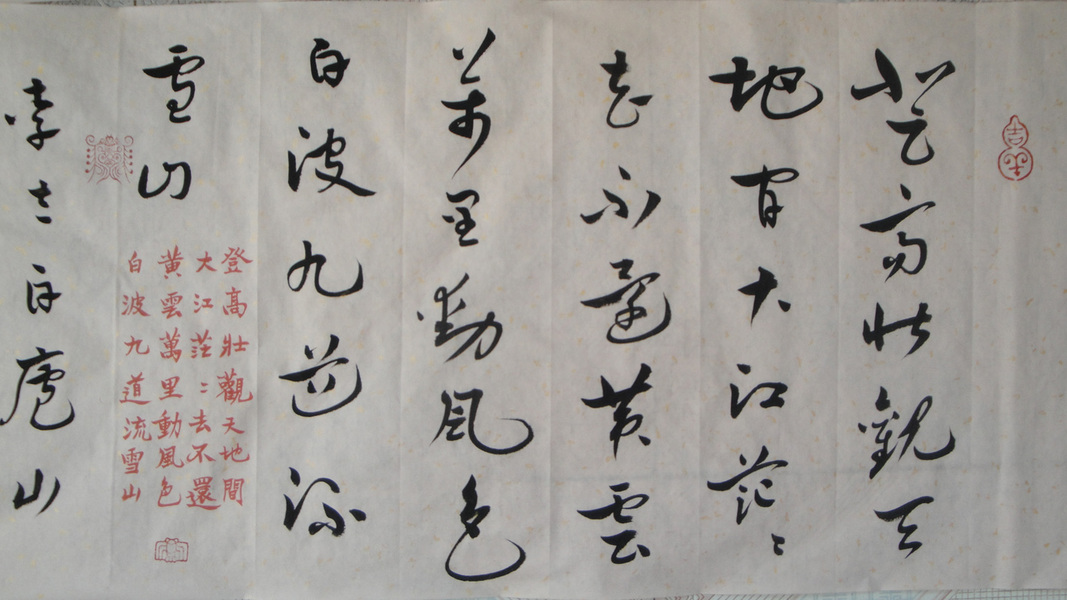 登高壯觀天
地間大江茫〻
去不還黃雲
萬里動風色
白波九道流
雪山
登高壯觀天地間
大江茫〻去不還
黃雲萬里動風色
白波九道流雪山
李太白廬山